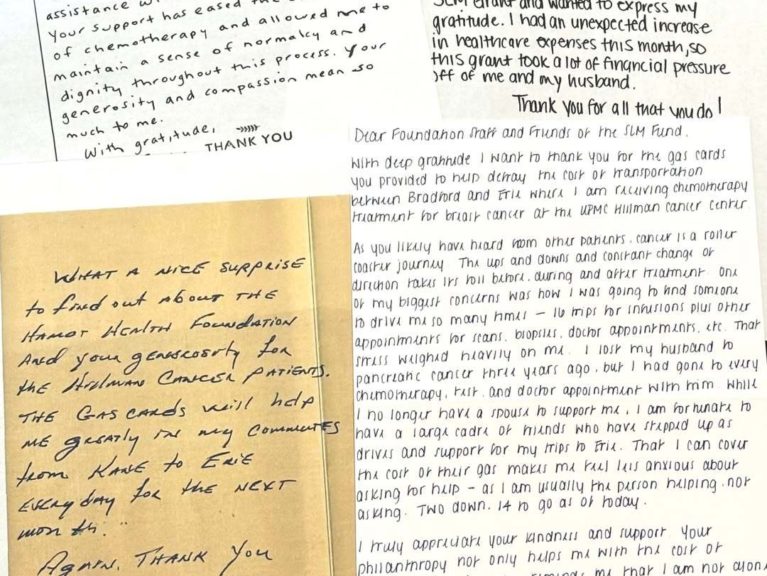 assistance
your support has eased the
of chemotherapy and allowed me to
maintain a sense of normalcy and
dignity throughout this process. Your
generosity and compassion mean so
much to me.
With gratitude,
THANK YOU
SLM Grant and wanted to express my
gratitude. I had an unexpected increase
in healthcare expenses this month, so
this grant took a lot of financial pressure
off of me and my husband.
Thank you for all that you do!
Dear Foundation Staff and Friends of the SLM Fund,
With deep gratitude I want to thank you for the gas cards
you provided to help defray the cost of transportation
between Bradford and Erie where I am receiving chemotherapy
treatment for breast cancer at the UPMC Hillman Cancer Center.
As you likely have heard from other patients, cancer is a roller
coaster journey. The ups and downs and constant change of
direction takes its toll before, during and after treatment. One
of my biggest concerns was how I was going to find someone
to drive me so many times – 16 trips for infusions plus other
appointments for scans, biopsies, doctor appointments, etc. That
stress weighed heavily on me. I lost my husband to
pancreatic cancer three years ago, but I had gone to every
chemotherapy, test, and doctor appointment with him. While
I no longer have a spouse to support me, I am fortunate to
have a large cadre of friends who have stepped up as
drives and support for my trips to Erie. That I can cover
the cost of their gas makes me feel less anxious about
asking for help – as I am usually the person helping, not
asking. Two down, 14 to go as of today.
I truly appreciate your kindness and support. Your
philanthropy not only helps me with the cost of
reminds me that I am not alone
WHAT A NICE SURPRISE
to find out about THE
HAMOT HEALTH FOUNDATION
And your generosity for
the Hillman Cancer Patients.
THE GAS cards will help
me greatly in my commutes
from KANE to ERIE
Everyday for the next
month.
Again, THANK YOU